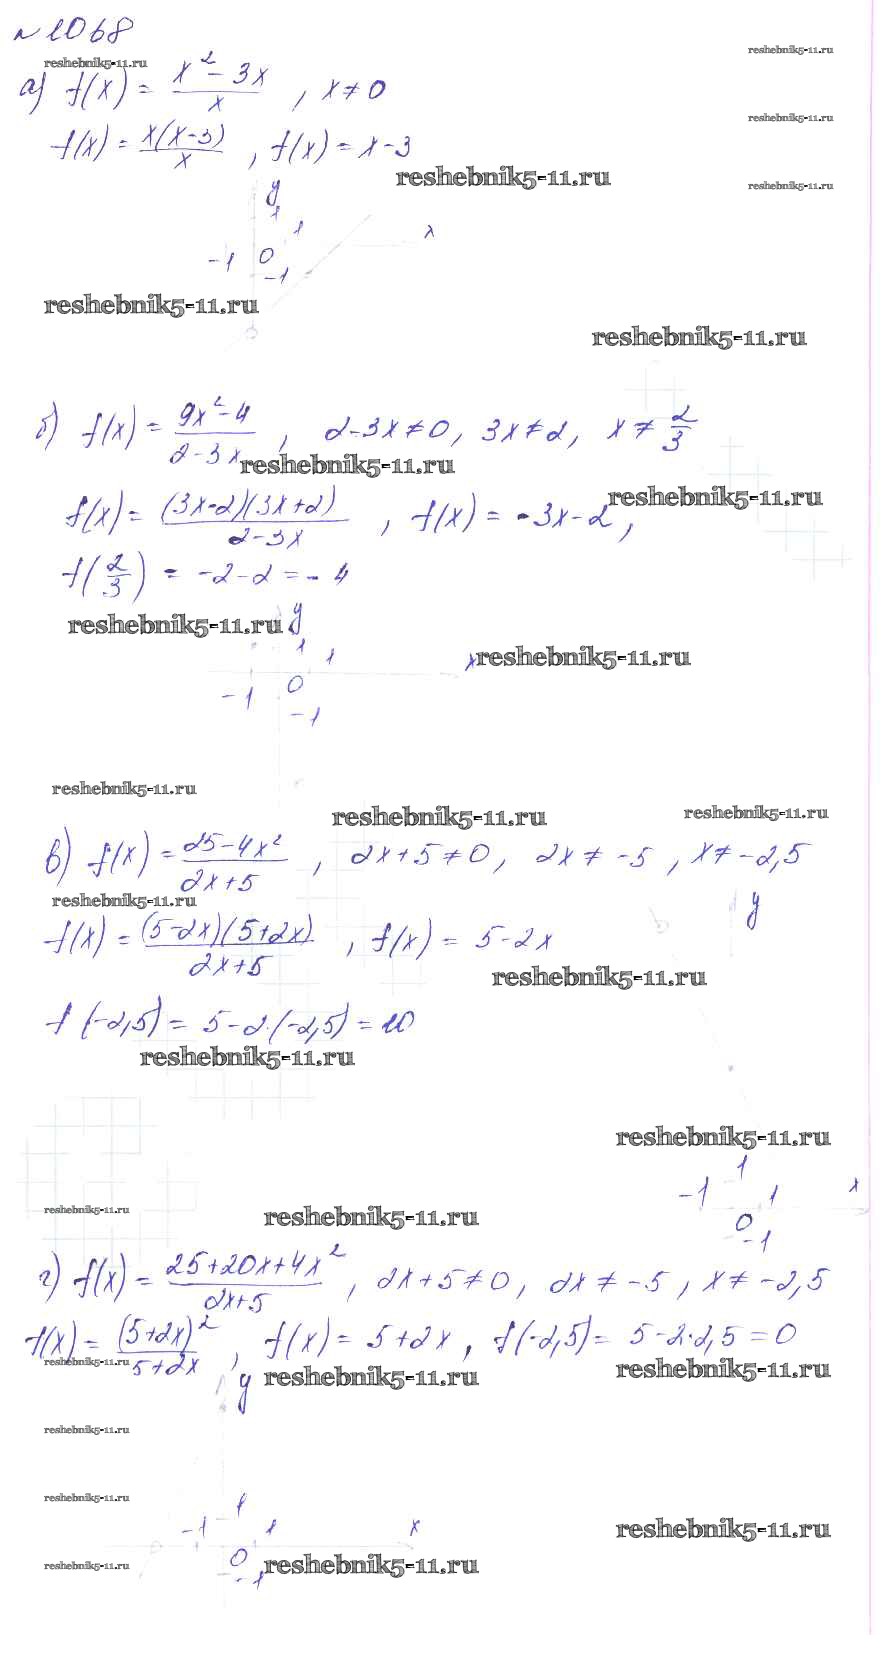 №1068
reshebnik5-11.ru
reshebnik5-11.ru
а) f(x) = (x² - 3x)/x , x ≠ 0
reshebnik5-11.ru
f(x) = x(x-3)/x , f(x) = x - 3
reshebnik5-11.ru
reshebnik5-11.ru
y
1
1
x
-1 0
-1
reshebnik5-11.ru
reshebnik5-11.ru
б) f(x) = (9x² - 4)/(2 - 3x) , 2 - 3x ≠ 0, 3x ≠ 2, x ≠ 2/3
reshebnik5-11.ru
reshebnik5-11.ru
f(x) = (3x-2)(3x+2)/(2-3x) , f(x) = -3x - 2,
f(2/3) = -2 - 2 = -4
reshebnik5-11.ru
y
1 1
x
reshebnik5-11.ru
-1 0
-1
reshebnik5-11.ru
reshebnik5-11.ru
reshebnik5-11.ru
в) f(x) = (25 - 4x²)/(2x+5) , 2x + 5 ≠ 0, 2x ≠ -5 , x ≠ -2,5
reshebnik5-11.ru
y
f(x) = (5-2x)(5+2x)/(2x+5) , f(x) = 5 - 2x
reshebnik5-11.ru
f(-2,5) = 5 - 2·(-2,5) = 10
reshebnik5-11.ru
reshebnik5-11.ru
1
-1 1 x
reshebnik5-11.ru
reshebnik5-11.ru
0
-1
г) f(x) = (25+20x+4x²)/(2x+5) , 2x + 5 ≠ 0, 2x ≠ -5 , x ≠ -2,5
f(x) = (5+2x)²/(5+2x) , f(x) = 5 + 2x , f(-2,5) = 5 - 2·2,5 = 0
reshebnik5-11.ru
reshebnik5-11.ru
reshebnik5-11.ru
y
reshebnik5-11.ru
reshebnik5-11.ru
1
-1 1 x
reshebnik5-11.ru
0
reshebnik5-11.ru
reshebnik5-11.ru
-1